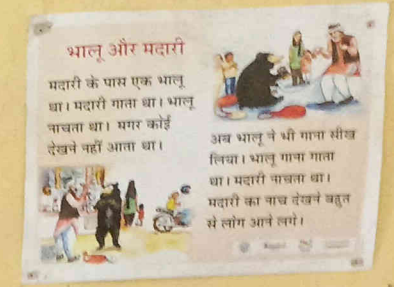 भालू और मदारी
मदारी के पास एक भालू
था। मदारी गाता था। भालू
नाचता था। मगर कोई
देखने नहीं आता था।
अब भालू ने भी गाना सीख
लिया। भालू गाना गाता
था। मदारी नाचता था।
मदारी का नाच देखने बहुत
से लोग आने लगे।